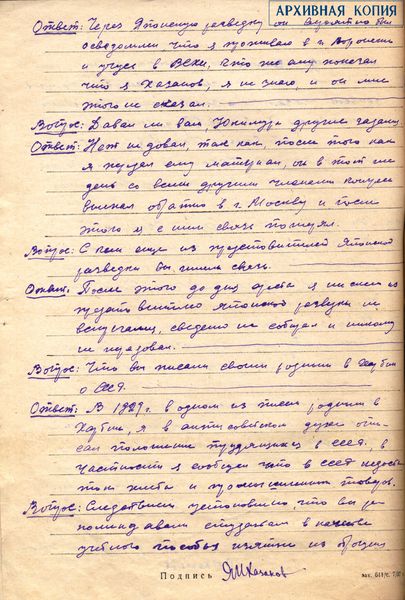 АРХИВНАЯ КОПИЯ
Ответ: Через Японскую разведку он вероятно был
осведомлен что я проживаю в г. Воронеж
и учусь в ВСХИ, что же ему показал
что я Казаков, я не знаю, и он мне
этого не сказал.
Вопрос: Давал ли вам, другие задания
Ответ: Нет не давал, так как, после того как
я передал ему материал, он в тот же
день со всеми другими членами
выехал обратно в г. Москву и после
этого я с ним связь потерял.
Вопрос: С кем еще из представителей Японской
разведки вы имели связь.
Ответ: После этого до дня ареста я ни с кем из
представителей Японской разведки не
встречался, сведений не собирал и никому
не передавал.
Вопрос: Что вы писали своим родным в Харбин
о СССР.
Ответ: В 1929 г. в одном из писем родным в
Харбин, я в антисоветском духе описал
положение трудящихся в СССР, в
частности я сообщал что в СССР недоста
ток хлеба и промышленных товаров.
Вопрос: Следствием установлено, что вы ре
комендовали студентам в качестве
учебного пособия изъятые из
Подпись